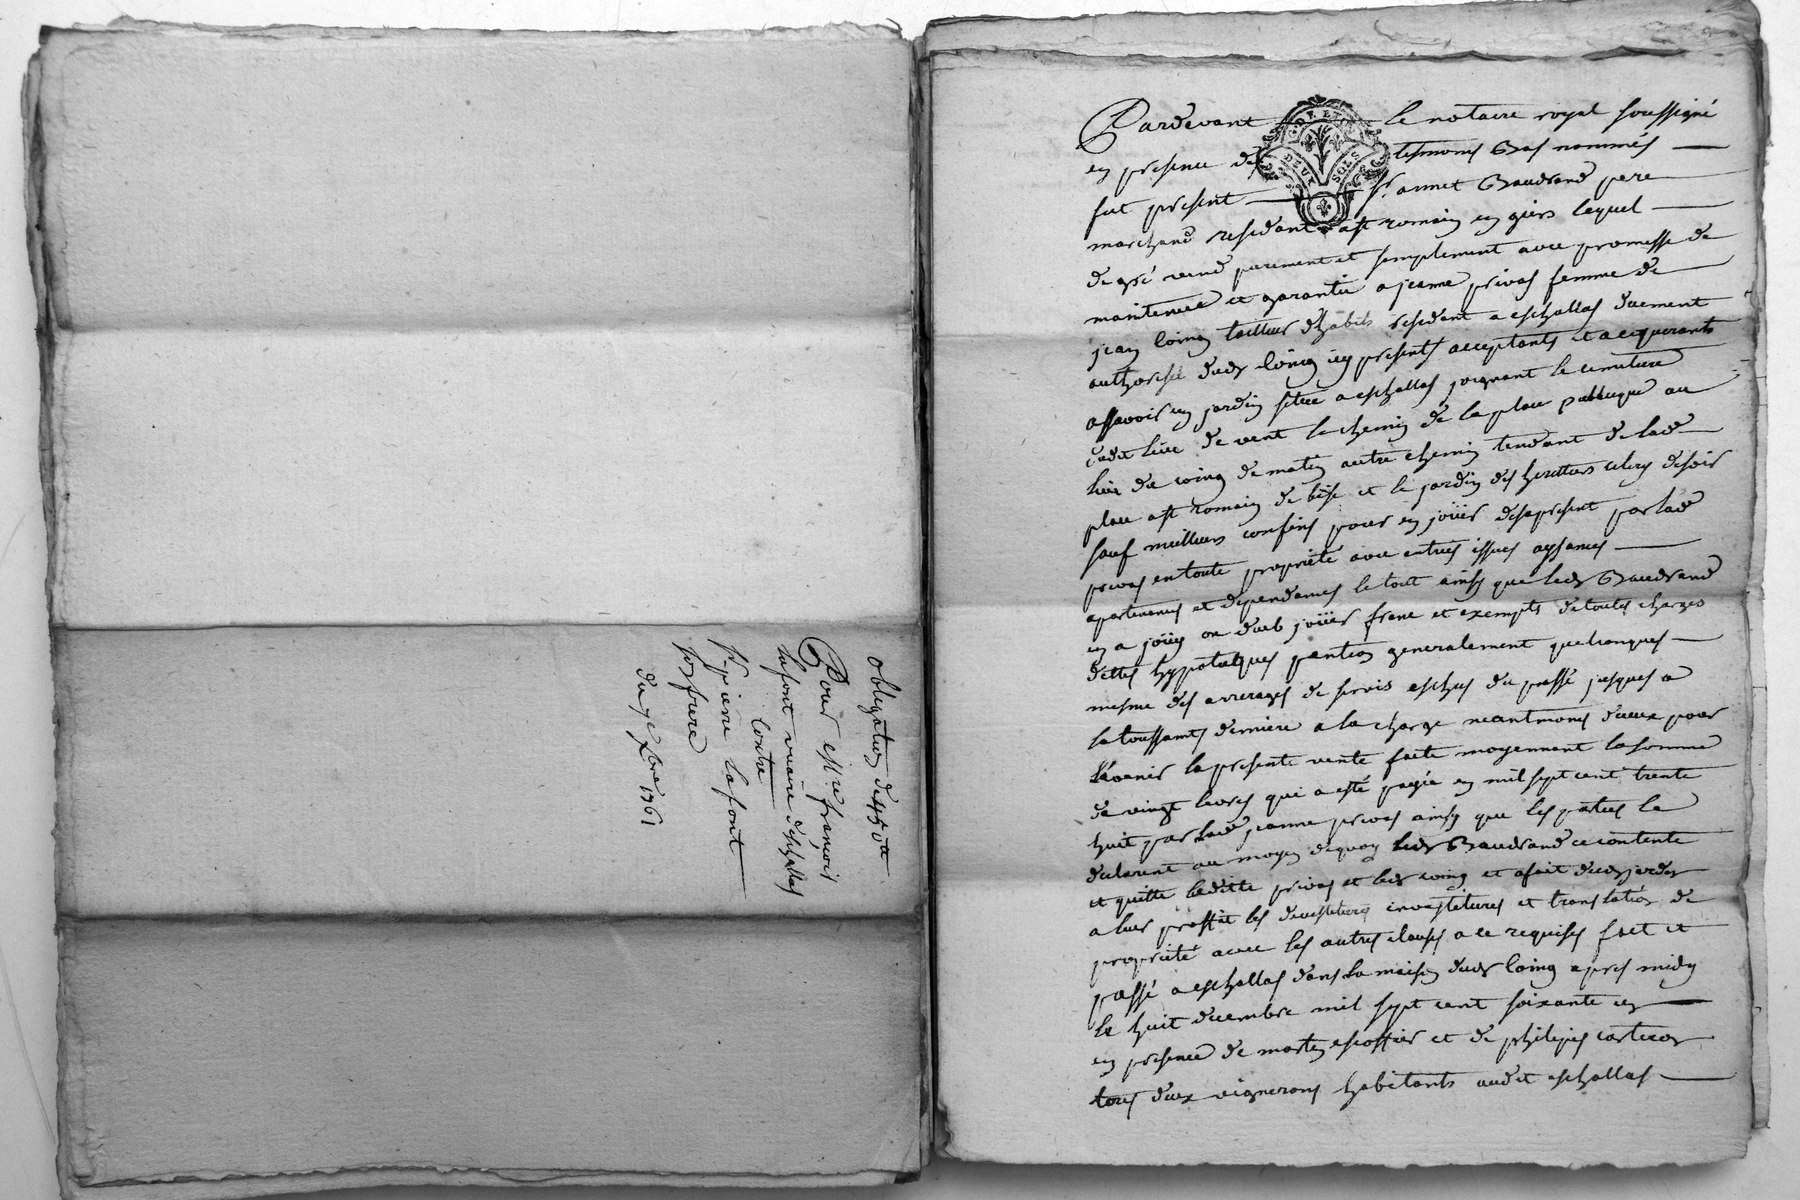 obligation de 450 ₶
Pour Mre françois
lafont vicaire deschallas
Contre
Sr pierre lafont
son frere
du 9e xbre 1761
Pardevant le notaire royal soussigné
en presence des tesmoins Bas nommés
fut present Sr annet Baudrand pere
marchand residant a st romain en giers lequel
de gré vend purement et simplement avec promesse de
maintenue et garantie a jeanne privas femme de
jean loing tailleur dhabits residant a eschallas duement
authorisée dudt loing icy presents acceptants et acquerants
assavoir un jardin situé a eschallas joignant le cimetiere
dudit lieu de vent le chemin de la place publique au
lieu du coing de matin autre chemin tendant de lade
place a st romain de bise et le jardin des heritiers de soir
sauf meilleurs confins pour en joüir desapresent par lade
privas en toute proprieté avec entrées issues aysances
apartenances et dependances le tout ainsy que ledt Baudrand
en a joüy ou dub joüir franc et exempts de toutes charges
dettes hypoteques pention generalement quelconques
mesme des arrerages de servis eschus du passé jusques a
la toussaints derniere a la charge neantmoins diceux pour
lavenir la presente vente faite moyennant la somme
de vingt livres qui a esté payée en mil sept cent trente
huit par lade jeanne privas ainsy que les parties le
declarent au moyen dequoy ledt Baudrand ce contente
et quitte laditte privas et ledt loing et a fait dudt jardin
a leur proffit les devestitures investitures et translation de
proprieté avec les autres clauses a ce requises fait et
passé a eschallas dans la maison dudt loing apres midy
le huit decembre mil sept cent soixante un
en presence de martin escoffier et de philipes carteron
tous deux vignerons habitants audit eschallas
G. DE LYON
DEUX SOLS